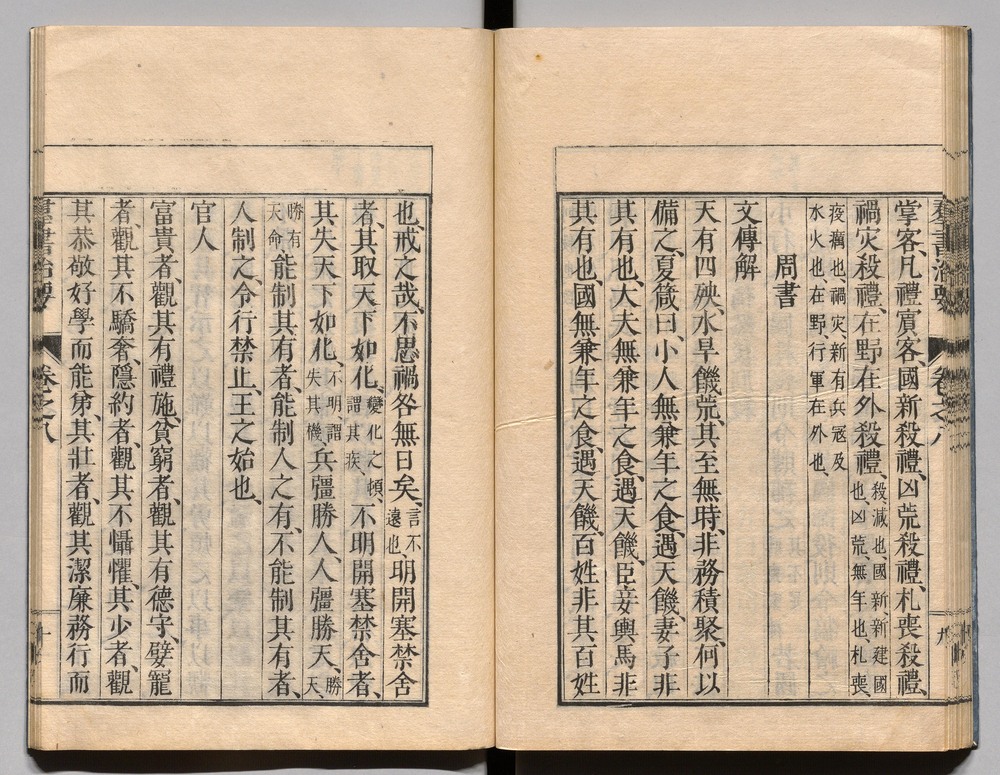 羣書治要 卷之八 九
掌客、凡禮賓客、國新殺禮、凶荒殺禮、札喪殺禮、
禍灾殺禮、在野在外殺禮、殺、減也、國新、新建國也、凶荒、無年也、札喪、
疫癘也、禍灾、新有兵寇及水火也、在野、行軍在外也
周書
文傳解
天有四殃、水旱饑荒、其至無時、非務積聚、何以
備之、夏箴曰、小人無兼年之食、遇天饑、妻子非
其有也、大夫無兼年之食、遇天饑、臣妾輿馬非
其有也、國無兼年之食、遇天饑、百姓非其百姓
也、戒之哉、不思禍咎無日矣、言不遠也、明開塞禁舍
者、其取天下如化、變化之頓、謂其疾、不明開塞禁舍者、
其失天下如化、不明謂失其機、兵彊勝人、人彊勝天、勝天、
勝有天命、能制其有者、能制人之有、不能制其有者、
人制之、令行禁止、王之始也、
官人
富貴者、觀其有禮施、貧窮者、觀其有德守、嬖寵
者、觀其不驕奢、隱約者、觀其不懾懼、其少者、觀
其恭敬好學而能弟、其壯者、觀其潔廉務行而
羣書治要 卷之八 十